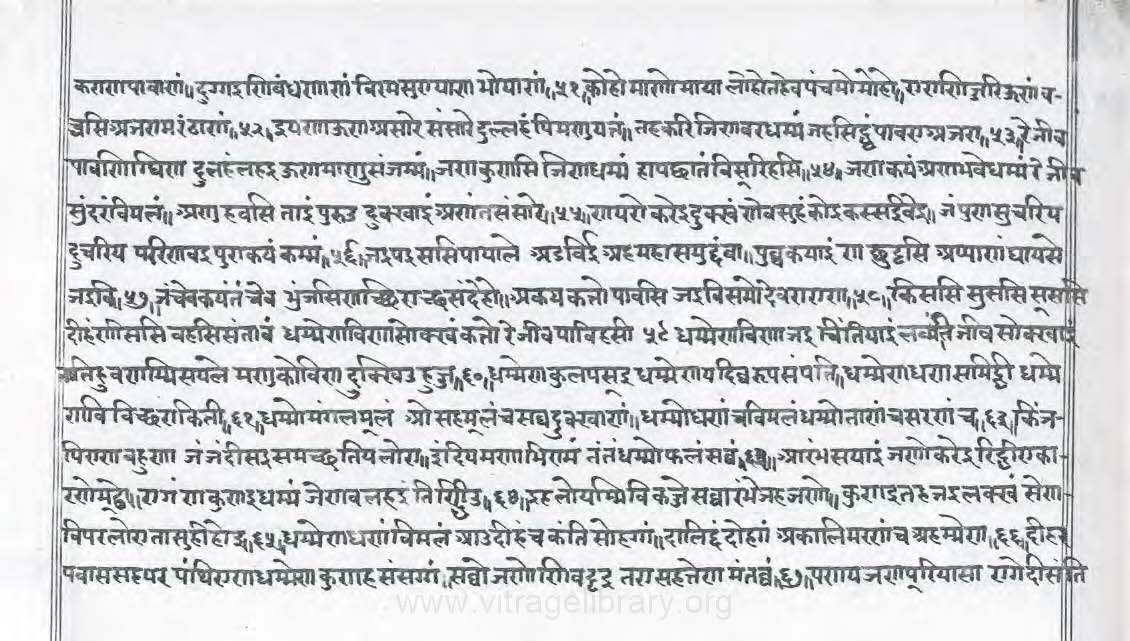 करणपावाणं॥दुग्गइणिबंधणाणं विरमसु एयाण भोयाणं॥५१॥कोहो माणो माया लोहो तहेव पंचमो मोहो॥एए णिज्जरिऊणं व-
च्चसि अजरामरं ठाणं॥५२॥इय णाऊण असारे संसारे दुल्लहं पि मणुयत्तं॥तह करि जिणवरधम्मं जह सिद्धं पावए अजरा॥५३॥रे जीव
पावणिग्घिण दुलहं लहइ ऊण माणुसं जम्मं॥जण कुणसि जिणधम्मं हा पछातं विसूरिहसि॥५४॥जण कयं अणभवे धम्मं रे जीव
सुंदरं विमलं॥अणुहवसि ताइं पुरुउ दुक्खाइं अणंतसंसारे॥५५॥णायरो करेइ दुक्खं णेव सुहं कोइ कस्सई देइ॥जं पुण सुचरिय
दुचरिय परिणवइ पुराकयं कम्मं॥५६॥जइ पइससि पायाले अडविई अह महासमुद्दं वा॥पुव्वकयाइं ण छुट्टसि अप्पाणं घायसे
जइवि॥५७॥जं चेव कयं तं चेव भुंजसि णच्छि एच्छ संदेहो॥अकय कत्तो पावसि जइवि समो देवराएण॥५८॥किससि सुससि ससोसि
दीहं णीससि वहसि संतावं धम्मेण विणा सोक्खं कत्तो रे जीव पाविहसी ५९ धम्मेण विण जइ चिंतियाइं लब्भंति जीव सोक्खाइं
तिहुवणम्मि सयले मणुको विण दुक्खिउ हुज्ज॥६०॥धम्मेण कुलपसूइ धम्मेण य दिव्वरूपसंपत्ति॥धम्मेण धणसमिद्धी धम्मे
णवि विच्छरा किती॥६१॥धम्मो मंगलमूलं ओसहमूलं च सव्वदुक्खाणं॥धम्मो धणं च विमलं धम्मो ताणं च सरणं च॥६२॥किं ज-
पिएण बहुएण जं जं दीसइ समच्छतियलोए॥इंदियमणाभिरामं तं तं धम्मो फलं सव्वं॥६३॥आरंभसयाइं जणो करेइ रिद्धीए का-
रणे मूढो॥एगं ण कुणइ धम्मं जेणव लहइ ति रिद्धीउ॥६४॥इहलोयम्मि वि कज्जे सव्वारंभे जह जणो॥कुणइ तह जइ लक्खं सेण-
वि परलोए ता सुही होइ॥६५॥धम्मेण धणं विमलं आउ दीहं च कंति सोहग्गं॥दालिद्दं दोहगं अकालिमरणं च अहम्मेण॥६६॥दीहर
पवाससहयर पंथिएण धम्मेण कुणह संसग्गं॥सव्वो जणो णिवट्टइ तए सहत्तेण मंतव्वं॥६७॥पणय जणपूरियासा एगे दीसंति
www.vitragelibrary.org